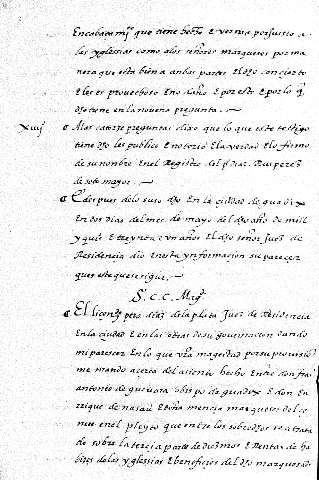 Encabeçami° que tiene hecho E verna por susto a
las yglesias como a los señores marqueses por ma
nera que esta bien a anbas partes El dho concierto
E les es provechoso E no daño E por esto E por lo q
dho tiene en la novena pregunta.
xiiij A las catorze preguntas dixo que lo que este testigo
tiene dho es publico E notorio E la verdad E lo firmo
de su nonbre En el Registro del
de sotomayor.
E despues de lo suso dho En la ciudad de guadix
En dos dias del mes de mayo del dho año de mill
y quis E treynta E vn años El dho señor Juez de
Residencia dio En esta ynformacion su parecer
ques este que se sigue.
S. C. C. Magd
El licendo pero diaz de la plata Juez de Residencia
En la ciudad E En las otras de su governacion dando
mi parescer En lo que vra magestad por su provision
me mando acerca del asiento hecho Entre don fray
antonio de guevara obispo de guadix E don En
rrique de nasau E doña mencia marqueses del ce
nete en el pleyto que entre los sobredhos se a trata
do sobre la tercia parte de diezmos E Rentas de ha
bizes de las yglesias E beneficios del dho marquesado